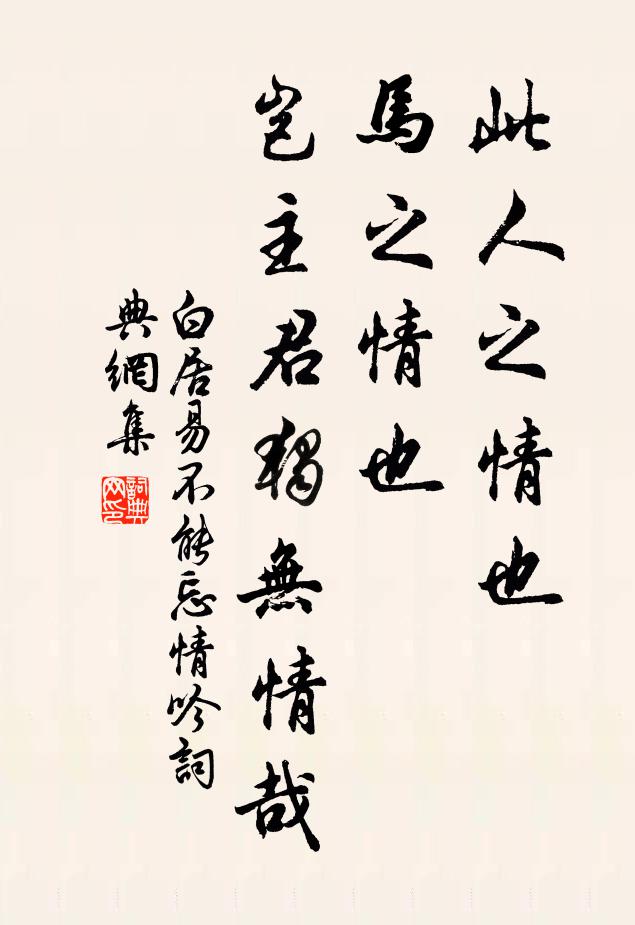 此人之情也
馬之情也
岂主君獨無情哉
白居易不能忘情吟詞
典網集
詞典
网印